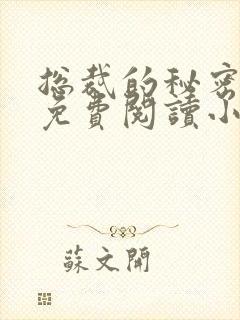 总裁的秘密
免費閱讀小
蘇文開